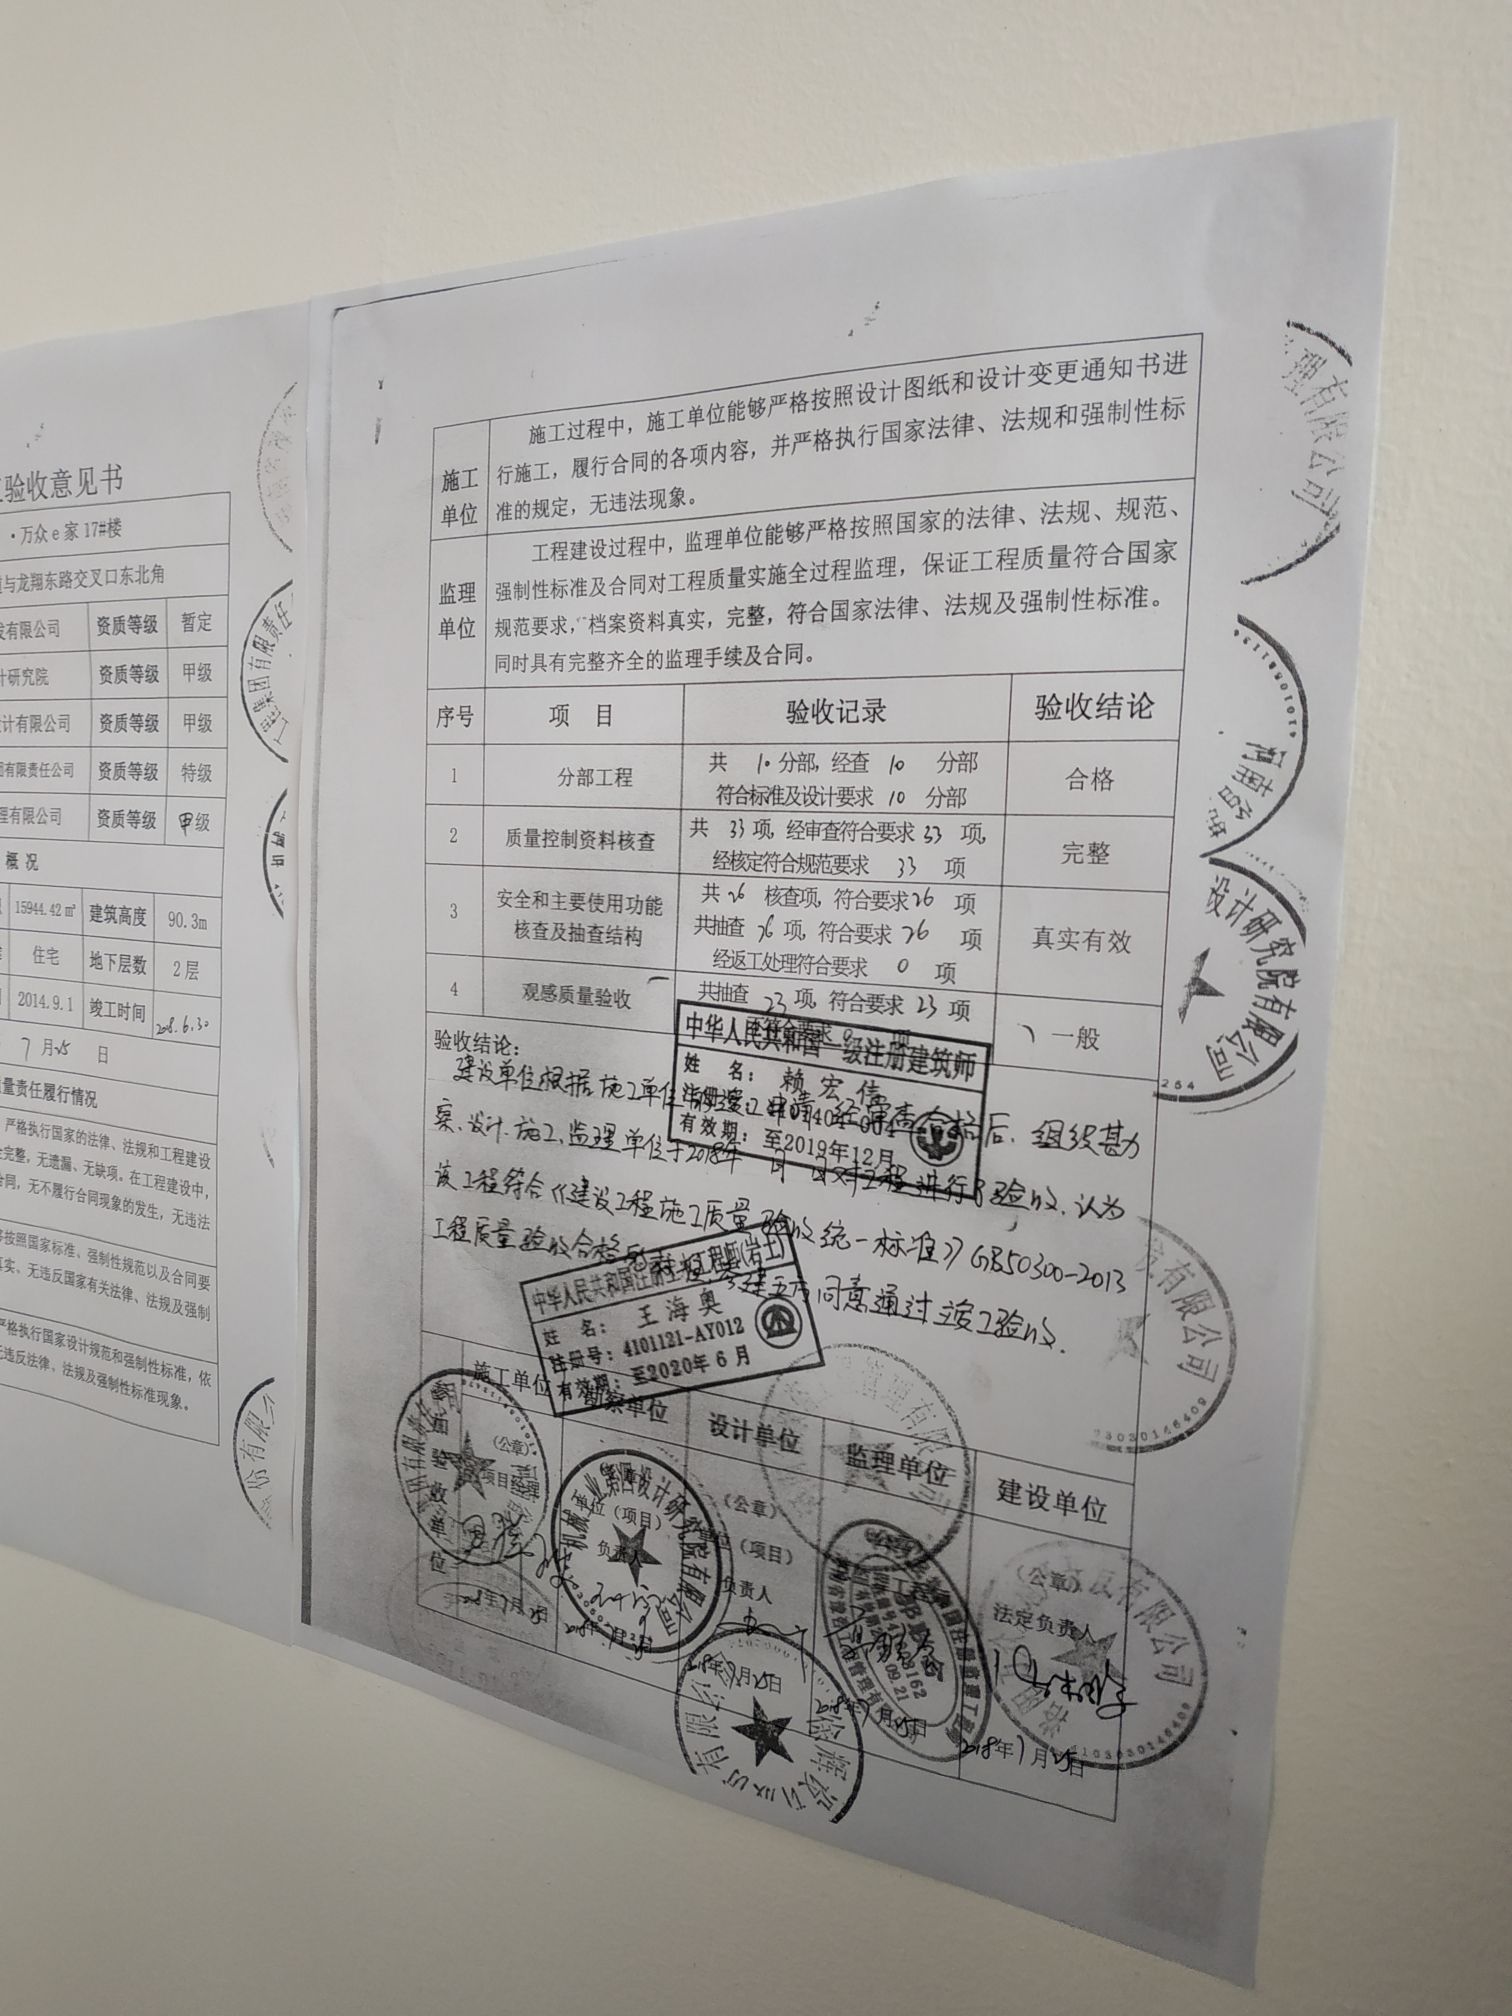 验收意见书
·万众e家 17#楼
与龙翔东路交叉口东北角
有限公司 资质等级 暂定
计研究院 资质等级 甲级
计有限公司 资质等级 甲级
有限责任公司 资质等级 特级
理有限公司 资质等级 甲级
概况
15944.42㎡ 建筑高度 90.3m
住宅 地下层数 2层
2014.9.1 竣工时间 2018.6.30
7月25日
量责任履行情况
严格执行国家的法律、法规和工程建设
完整，无遗漏、无缺项。在工程建设中，
合同，无不履行合同现象的发生，无违法
按照国家标准、强制性规范以及合同要
真实、无违反国家有关法律、法规及强制
严格执行国家设计规范和强制性标准，依
无违反法律、法规及强制性标准现象。
施工单位
施工过程中，施工单位能够严格按照设计图纸和设计变更通知书进
行施工，履行合同的各项内容，并严格执行国家法律、法规和强制性标
准的规定，无违法现象。
监理单位
工程建设过程中，监理单位能够严格按照国家的法律、法规、规范、
强制性标准及合同对工程质量实施全过程监理，保证工程质量符合国家
规范要求，档案资料真实，完整，符合国家法律、法规及强制性标准。
同时具有完整齐全的监理手续及合同。
序号 项目 验收记录 验收结论
1 分部工程 共 10 分部，经查 10 分部 合格
符合标准及设计要求 10 分部
2 质量控制资料核查 共 33 项，经审查符合要求 33 项， 完整
经核定符合规范要求 33 项
3 安全和主要使用功能 共 26 核查项，符合要求 26 项 真实有效
核查及抽查结构 共抽查 26 项，符合要求 26 项
经返工处理符合要求 0 项
4 观感质量验收 共抽查 23 项，符合要求 23 项 一般
不符合要求 0 项
中华人民共和国一级注册建筑师
姓名：赖宏信
有效期：至2019年12月
验收结论：
建设单位根据施工单位 申请 经审查合格后，组织勘
察、设计、施工、监理单位于2018年 月 日对工程进行了验收，认为
该工程符合《建设工程施工质量验收统一标准》GB50300-2013
工程质量验收合格 同意通过竣工验收.
中华人民共和国注册土木工程师(岩土)
姓名：王海奥
注册号：4101121-AY012
有效期：至2020年6月
施工单位 勘察单位 设计单位 监理单位 建设单位
（公章） （公章） （公章）
单位（项目） 单位（项目） 法定负责人
负责人 负责人
2018年7月25日
2018年7月25日
2018年7月25日
2018年7月25日
2018年7月25日
理有限公司
设计研究院有限公司
发有限公司
管理有限公司
机械工业第四设计研究院有限公司